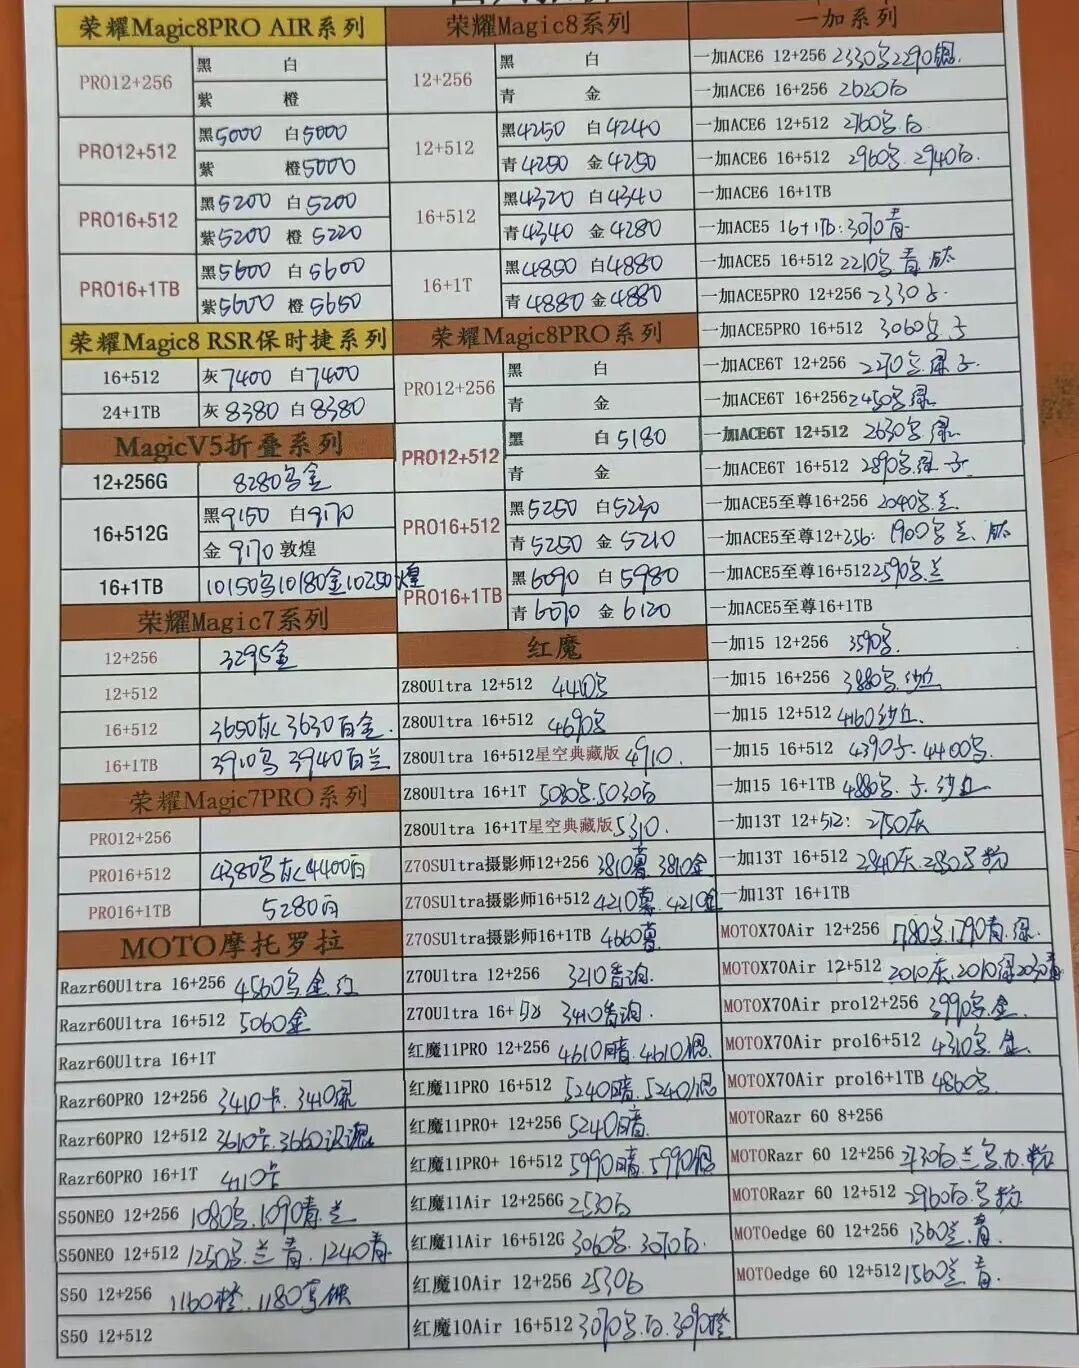 荣耀Magic8PRO AIR系列
PRO12+256 黑 白
紫 橙
PRO12+512 黑5000 白5000
紫 橙5000
PRO16+512 黑5200 白5200
紫5200 橙5220
PRO16+1TB 黑5600 白5600
紫5600 橙5650
荣耀Magic8 RSR保时捷系列
16+512 灰7400 白7400
24+1TB 灰8380 白8380
MagicV5折叠系列
12+256G 8280乌金
16+512G 黑9150 白9170
金9170 敦煌
16+1TB 10150乌10180金10250煌
荣耀Magic7系列
12+256 3295金
12+512
16+512 3650灰 3630百金
16+1TB 3910乌 3940百兰
荣耀Magic7PRO系列
PRO12+256
PRO16+512 4380乌灰 4400百
PRO16+1TB 5280百
MOTO摩托罗拉
Razr60Ultra 16+256 4560乌金红
Razr60Ultra 16+512 5060金
Razr60Ultra 16+1T
Razr60PRO 12+256 3410卡.3410绿
Razr60PRO 12+512 3610卡.3660
Razr60PRO 16+1T 4110卡
S50NEO 12+256 1080乌.1090青兰
S50NEO 12+512 1250乌兰青.1240青
S50 12+256 1160橙.1180乌
S50 12+512
荣耀Magic8系列
12+256 黑 白
青 金
12+512 黑4250 白4240
青4250 金4250
16+512 黑4320 白4340
青4340 金4280
16+1T 黑4850 白4880
青4880 金4880
荣耀Magic8PRO系列
PRO12+256 黑 白
青 金
PRO12+512 黑 白5180
青 金
PRO16+512 黑5250 白5230
青5250 金5210
PRO16+1TB 黑6090 白5980
青6070 金6120
红魔
Z80Ultra 12+512 4440乌
Z80Ultra 16+512 4690乌
Z80Ultra 16+512星空典藏版 4910.
Z80Ultra 16+1T 5030乌.5030白
Z80Ultra 16+1T星空典藏版 5310.
Z70SUltra摄影师12+256 3810 3810金
Z70SUltra摄影师16+512 4210 4210金
Z70SUltra摄影师16+1TB 4660
Z70Ultra 12+256 3210
Z70Ultra 16+ 3410
红魔11PRO 12+256 4610暗.4610银.
红魔11PRO 16+512 5240暗.5240银
红魔11PRO+ 12+256 5240暗.
红魔11PRO+ 16+512 5990暗.5990银
红魔11Air 12+256G 2530白
红魔11Air 16+512G 3060乌.3070白.
红魔10Air 12+256 2530白
红魔10Air 16+512 3070乌.白.3090橙
一加系列
一加ACE6 12+256 2330乌2290银.
一加ACE6 16+256 2620白
一加ACE6 12+512 2760乌.白.
一加ACE6 16+512 2960乌.2940白.
一加ACE6 16+1TB
一加ACE5 16+1TB:3070青
一加ACE5 16+512 2210乌 青 钛
一加ACE5PRO 12+256 2330子.
一加ACE5PRO 16+512 3060乌.子
一加ACE6T 12+256 2270乌.绿 子.
一加ACE6T 16+256 2450乌绿
一加ACE6T 12+512 2630乌 绿.
一加ACE6T 16+512 2890乌.绿 子
一加ACE5至尊16+256 2040乌.兰
一加ACE5至尊12+256: 1900乌 兰、钛
一加ACE5至尊16+512 2590乌.兰
一加ACE5至尊16+1TB
一加15 12+256 3590乌.
一加15 16+256 3880乌.沙丘
一加15 12+512 4160沙丘.
一加15 16+512 4390子.4400乌.
一加15 16+1TB 4880乌.子.沙丘
一加13T 12+512: 2750灰
一加13T 16+512 2840灰.2830乌粉
一加13T 16+1TB
MOTOX70Air 12+256 1780乌.1790青.绿.
MOTOX70Air 12+512 2010灰.2010绿2030青
MOTOX70Air pro12+256 3990乌.金.
MOTOX70Air pro16+512 4310乌.金.
MOTOX70Air pro16+1TB 4860乌.
MOTORazr 60 8+256
MOTORazr 60 12+256 2730白兰乌 粉
MOTORazr 60 12+512 2960白.乌粉
MOTOedge 60 12+256 1360兰.青.
MOTOedge 60 12+512 1560兰 青.